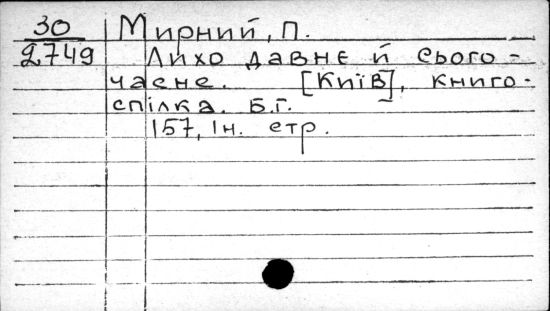 30 Мирний, П.
2749 Лихо давнє й сього-
часне. [Київ], книго-
спілка. Б.Г.
157, 1н. стр.